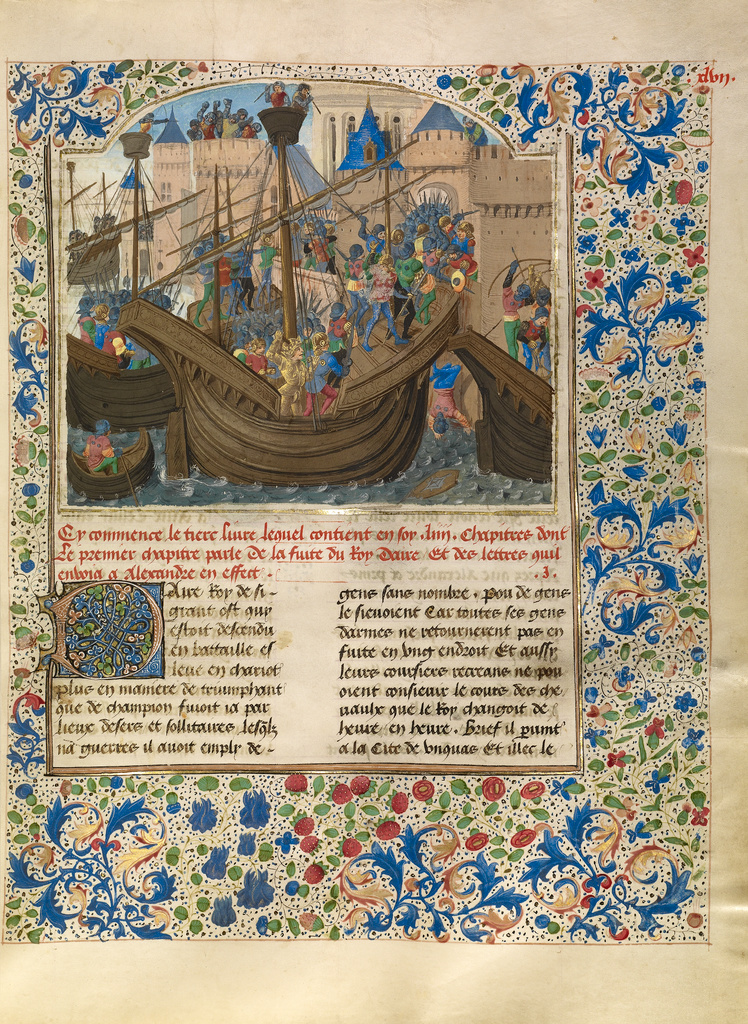 xlvij.
Cy commence le tiers liure lequel contient en soy .liiij. Chapitres dont
Le premier chapitre parle de la fuite du Roy Daire Et des lettres quil
enuoia a Alexandre en effect . .J.
Daire Roy de si -
grant ost quy
estoit descendu
en battaille es
leue en chariot
plus en maniere de triumphant
que de champion fuioit ia par
lieux desers et sollitaires lesqlz
na guerres il auoit emply de -
gens sans nombre . pou de gens
le sieuoient Car toutes ses gens
darmes ne retournerent pas en
fuite en vng endroit Et aussy
leurs coursiers recreans ne pou
oient consieuir le cours des che
uaulx que le Roy changoit de
heure en heure . Brief il paruint
a la Cite de vnquas Et illec le